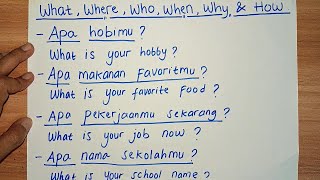 What, Where, Who, When, Why, & How
- Apa hobimu ?
What is your hobby ?
- Apa makanan Favoritmu ?
What is your favorite Food ?
- Apa pekerjaanmu sekarang ?
What is your job now ?
- Apa nama sekolahmu ?
What is your school name ?